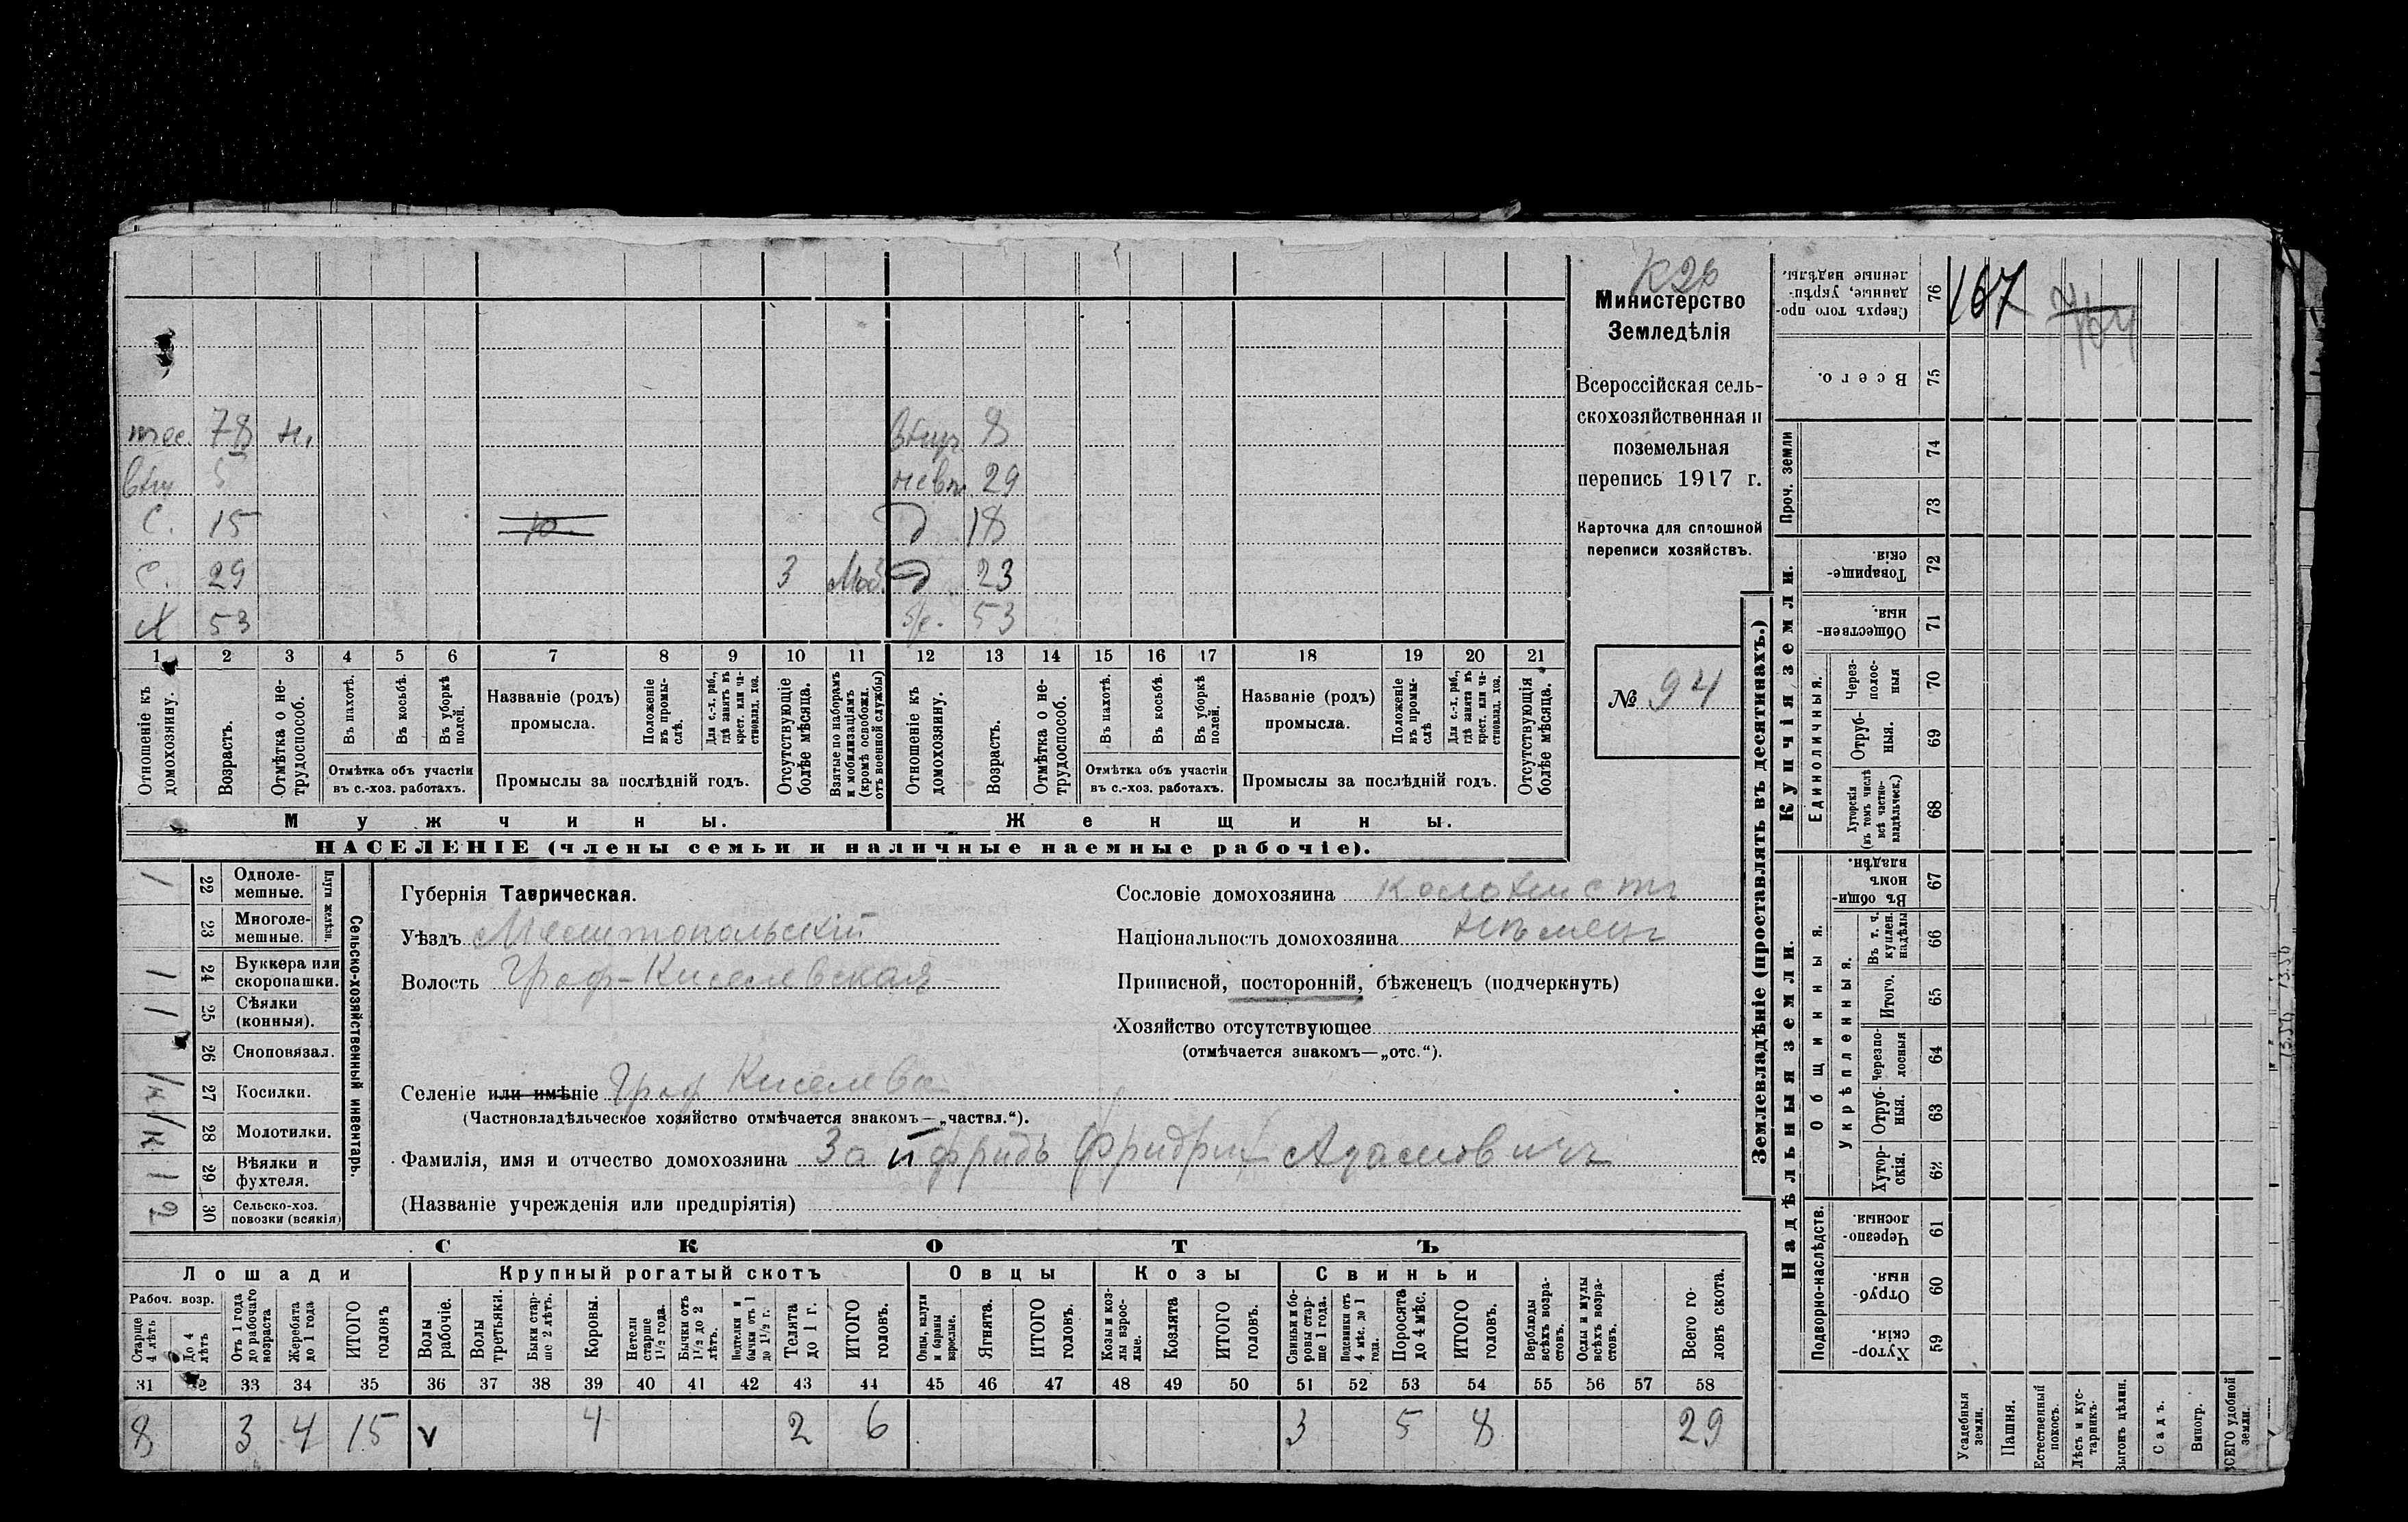 К2б
Министерство
Земледѣлія
Всероссійская сель-
скохозяйственная и
поземельная
перепись 1917 г.
Карточка для сплошной
переписи хозяйствъ.
№ 94
78 н. внуч. 8
внук 5 невѣс. 29
С. 15 д 18
С. 29 3 Моб. д 23
Х 53 53
1 2 3 4 5 6 7 8 9 10 11 12 13 14 15 16 17 18 19 20 21
Отношеніе къ домохозяину.
Возрастъ.
Отмѣтка о не-трудоспособ.
Въ пахотѣ.
Въ косьбѣ.
Въ уборкѣ полей.
Отмѣтка объ участіи
въ с.-хоз. работахъ.
Названіе (родъ)
промысла.
Положеніе въ промы-слѣ.
Для с.-х. раб., гдѣ занятъ въ крест. или ча-стновлад. хоз.
Промыслы за послѣдній годъ.
Отсутствующіе болѣе мѣсяца.
Взятые по наборамъ и мобилизаціямъ (кромѣ освобожд. отъ военной службы)
Отношеніе къ домохозяину.
Возрастъ.
Отмѣтка о не-трудоспособ.
Въ пахотѣ.
Въ косьбѣ.
Въ уборкѣ полей.
Отмѣтка объ участіи
въ с.-хоз. работахъ.
Названіе (родъ)
промысла.
Положеніе въ промы-слѣ
Для с.-х. раб., гдѣ занята въ крест. или ча-стновлад. хоз.
Промыслы за послѣдній годъ.
Отсутствующія болѣе мѣсяца.
Мужчины. Женщины.
НАСЕЛЕНІЕ (члены семьи и наличные наемные рабочіе).
Сельско-хозяйственный инвентарь.
Плуги желѣзн.
1 22 Одноле-мешные.
23 Многоле-мешные.
1 24 Буккера или скоропашки.
1 25 Сѣялки (конныя).
26 Сноповязал.
1 к 27 Косилки.
1 к 28 Молотилки.
1 29 Вѣялки и фухтеля.
2 30 Сельско-хоз. повозки (всякія)
Губернія Таврическая.
Уѣздъ Мелитопольскій
Волость Граф-Киселевская
Селеніе или имѣніе Граф Киселевка
(Частновладѣльческое хозяйство отмѣчается знакомъ—„частвл.“).
Фамилія, имя и отчество домохозяина Зайфридъ Фридрих Адамовичъ
(Названіе учрежденія или предпріятія)
Сословіе домохозяина колонистъ
Національность домохозяина нѣмецъ
Приписной, посторонній, бѣженецъ (подчеркнуть)
Хозяйство отсутствующее
(отмѣчается знакомъ—„отс.“).
СКОТЪ
Лошади Крупный рогатый скотъ Овцы Козы Свиньи
Рабоч. возр.
Старше 4 лѣтъ
До 4 лѣтъ
Отъ 1 года до рабочаго возраста
Жеребята до 1 года
ИТОГО головъ
Волы рабочіе.
Волы третьяки.
Быки стар-ше 2 лѣтъ.
Коровы.
Нетели старше 1½ года.
Бычки отъ 1½ до 2 лѣтъ.
Подтелки и бычки отъ 1 до 1½ г.
Телята до 1 г.
ИТОГО головъ.
Овцы, валухи и бараны взрослые.
Ягнята.
ИТОГО головъ.
Козы и коз-лы взрос-лые.
Козлята
ИТОГО головъ.
Свиньи и бо-ровы стар-ше 1 года.
Подсвинки отъ 4 мѣс. до 1 года.
Поросята до 4 мѣс.
ИТОГО головъ.
Верблюды всѣхъ возра-стовъ.
Ослы и мулы всѣхъ возра-стовъ.
Всего го-ловъ скота.
31 32 33 34 35 36 37 38 39 40 41 42 43 44 45 46 47 48 49 50 51 52 53 54 55 56 57 58
8 3 4 15 v 4 2 6 3 5 8 29
Землевладѣніе (проставлять въ десятинахъ.)
Купчія земли.
Надѣльныя земли.
Сверхъ того про-данные, укрѣп-ленные надѣлы. 76 167
Всего. 75
Проч. земли 74
73
Товарище-скія. 72
Обществен-ныя. 71
Единоличныя.
Через-полос-ныя 70
Отруб-ныя. 69
Хуторскія (въ томъ числѣ всѣ частно-владѣльческ.) 68
Общинныя.
Въ общи-номъ владѣн. 67
Укрѣпленныя.
Въ т. ч. куплен. надѣлы 66
Итого. 65
Черезпо-лосныя 64
Отруб-ныя. 63
Хутор-скія. 62
Подворно-наслѣдств.
Черезпо-лосныя. 61
Отруб-ныя. 60
Хутор-скія. 59
Усадебныя земли.
Пашня.
Естественный покосъ.
Лѣсъ и кус-тарникъ.
Выгонъ цѣлин.
Садъ.
Виногр.
ВСЕГО удобной земли.